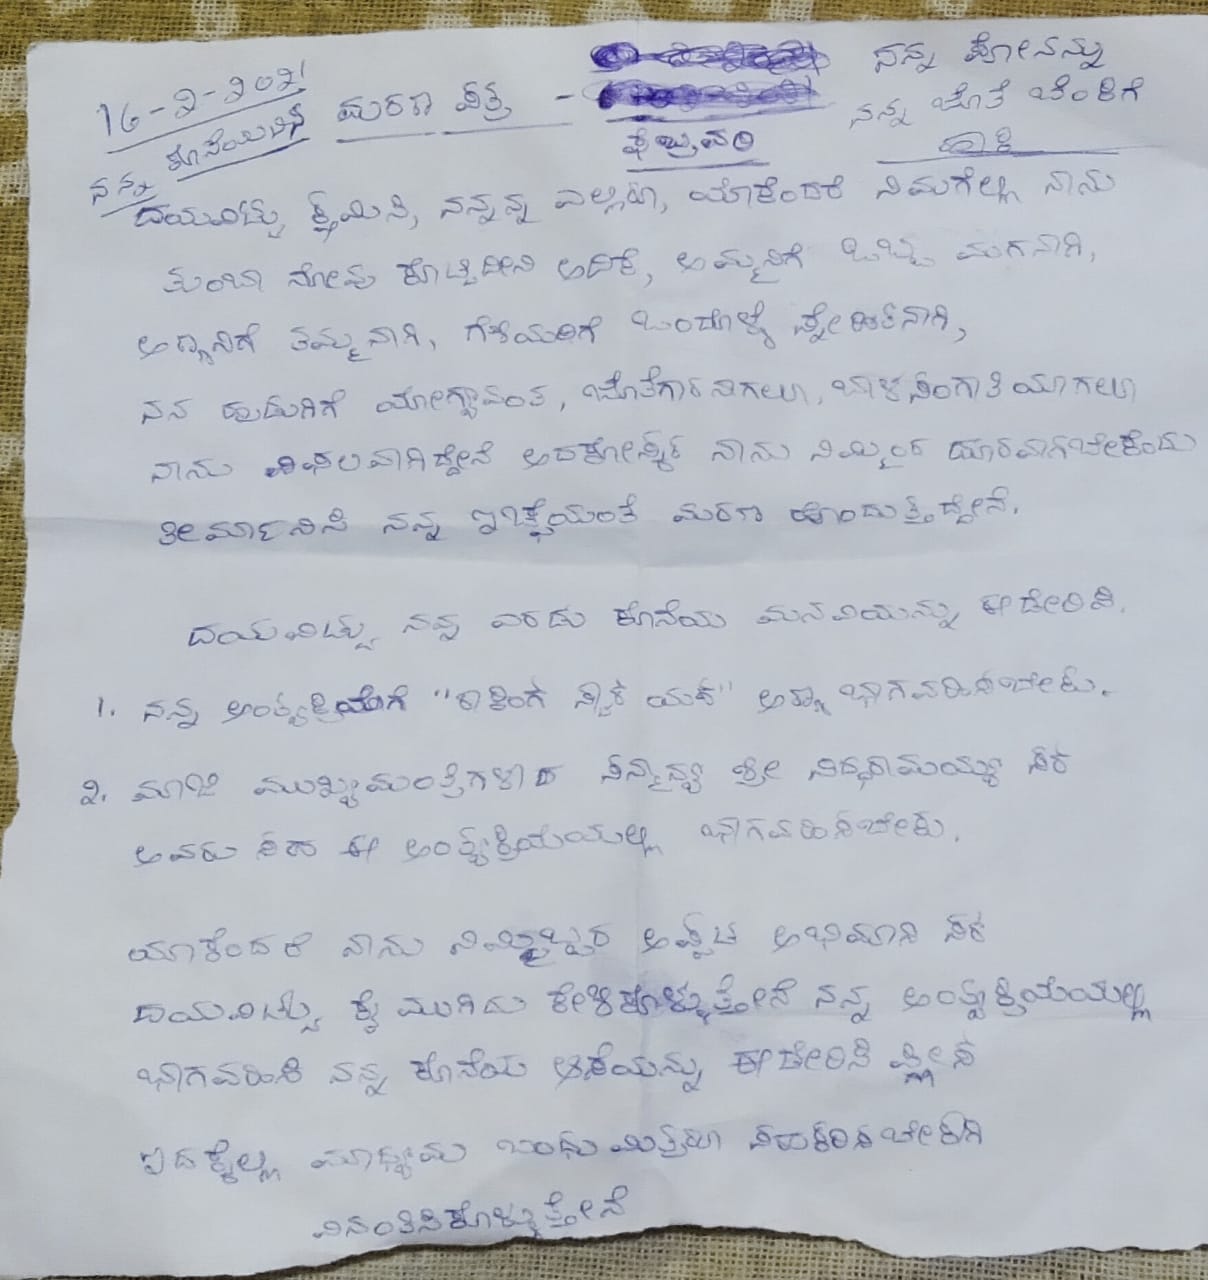 16-2-2021 ಮರಣ ಪತ್ರ - ಫೆಬ್ರವರಿ
ನನ್ನ ಕೊನೆಯದಿನ
ನನ್ನ ಫೋನನ್ನು
ನನ್ನ ಜೊತೆ ಬೆಂಕಿಗೆ
ಹಾಕಿ
ದಯವಿಟ್ಟು ಕ್ಷಮಿಸಿ, ನನ್ನನ್ನ ಎಲ್ಲರೂ, ಯಾಕೆಂದರೆ ನಿಮಗೆಲ್ಲ ನಾನು
ತುಂಬಾ ನೋವು ಕೊಟ್ಟಿದೀನಿ ಆದರೆ, ಅಮ್ಮನಿಗೆ ಒಬ್ಬ ಮಗನಾಗಿ,
ಅಣ್ಣನಿಗೆ ತಮ್ಮನಾಗಿ, ಗೆಳೆಯರಿಗೆ ಒಂದೊಳ್ಳೆ ಸ್ನೇಹಿತನಾಗಿ,
ನನ ಹುಡುಗಿಗೆ ಯೋಗ್ಯವಂತ, ಜೊತೆಗಾರನಾಗಲೂ, ಬಾಳಸಂಗಾತಿಯಾಗಲೂ
ನಾನು ವಿಫಲವಾಗಿದ್ದೇನೆ ಅದಕೋಸ್ಕರ ನಾನು ನಿಮ್ಮಿಂದ ದೂರವಾಗಬೇಕೆಂದು
ತೀರ್ಮಾನಿಸಿ ನನ್ನ ಇಚ್ಛೆಯಂತೆ ಮರಣ ಹೊಂದುತ್ತಿದ್ದೇನೆ.
ದಯವಿಟ್ಟು ನನ್ನ ಎರಡು ಕೊನೆಯ ಮನವಿಯನ್ನು ಈಡೇರಿಸಿ.
1. ನನ್ನ ಅಂತ್ಯಕ್ರಿಯೆಗೆ "ರಾಕಿಂಗ್ ಸ್ಟಾರ್ ಯಶ್" ಅಣ್ಣ ಭಾಗವಹಿಸಬೇಕು.
2. ಮಾಜಿ ಮುಖ್ಯಮಂತ್ರಿಗಳಾದ ಸನ್ಮಾನ್ಯ ಶ್ರೀ ಸಿದ್ಧರಾಮಯ್ಯ ಸರ್
ಅವರು ಸಹ ಈ ಅಂತ್ಯಕ್ರಿಯೆಯಲ್ಲಿ ಭಾಗವಹಿಸಬೇಕು.
ಯಾಕೆಂದರೆ ನಾನು ನಿಮ್ಮಿಬ್ಬರ ಅಪ್ಪಟ ಅಭಿಮಾನಿ ಸರ್
ದಯವಿಟ್ಟು ಕೈ ಮುಗಿದು ಕೇಳಿಕೊಳ್ಳುತ್ತೇನೆ ನನ್ನ ಅಂತ್ಯಕ್ರಿಯೆಯಲ್ಲಿ
ಭಾಗವಹಿಸಿ ನನ್ನ ಕೊನೆಯ ಆಸೆಯನ್ನು ಈಡೇರಿಸಿ ಪ್ಲೀಸ್
ಇದಕ್ಕೆಲ್ಲ ಮಾಧ್ಯಮ ಬಂಧುಮಿತ್ರರೂ ಸಹಕರಿಸಬೇಕಾಗಿ
ವಿನಂತಿಸಿಕೊಳ್ಳುತ್ತೇನೆ